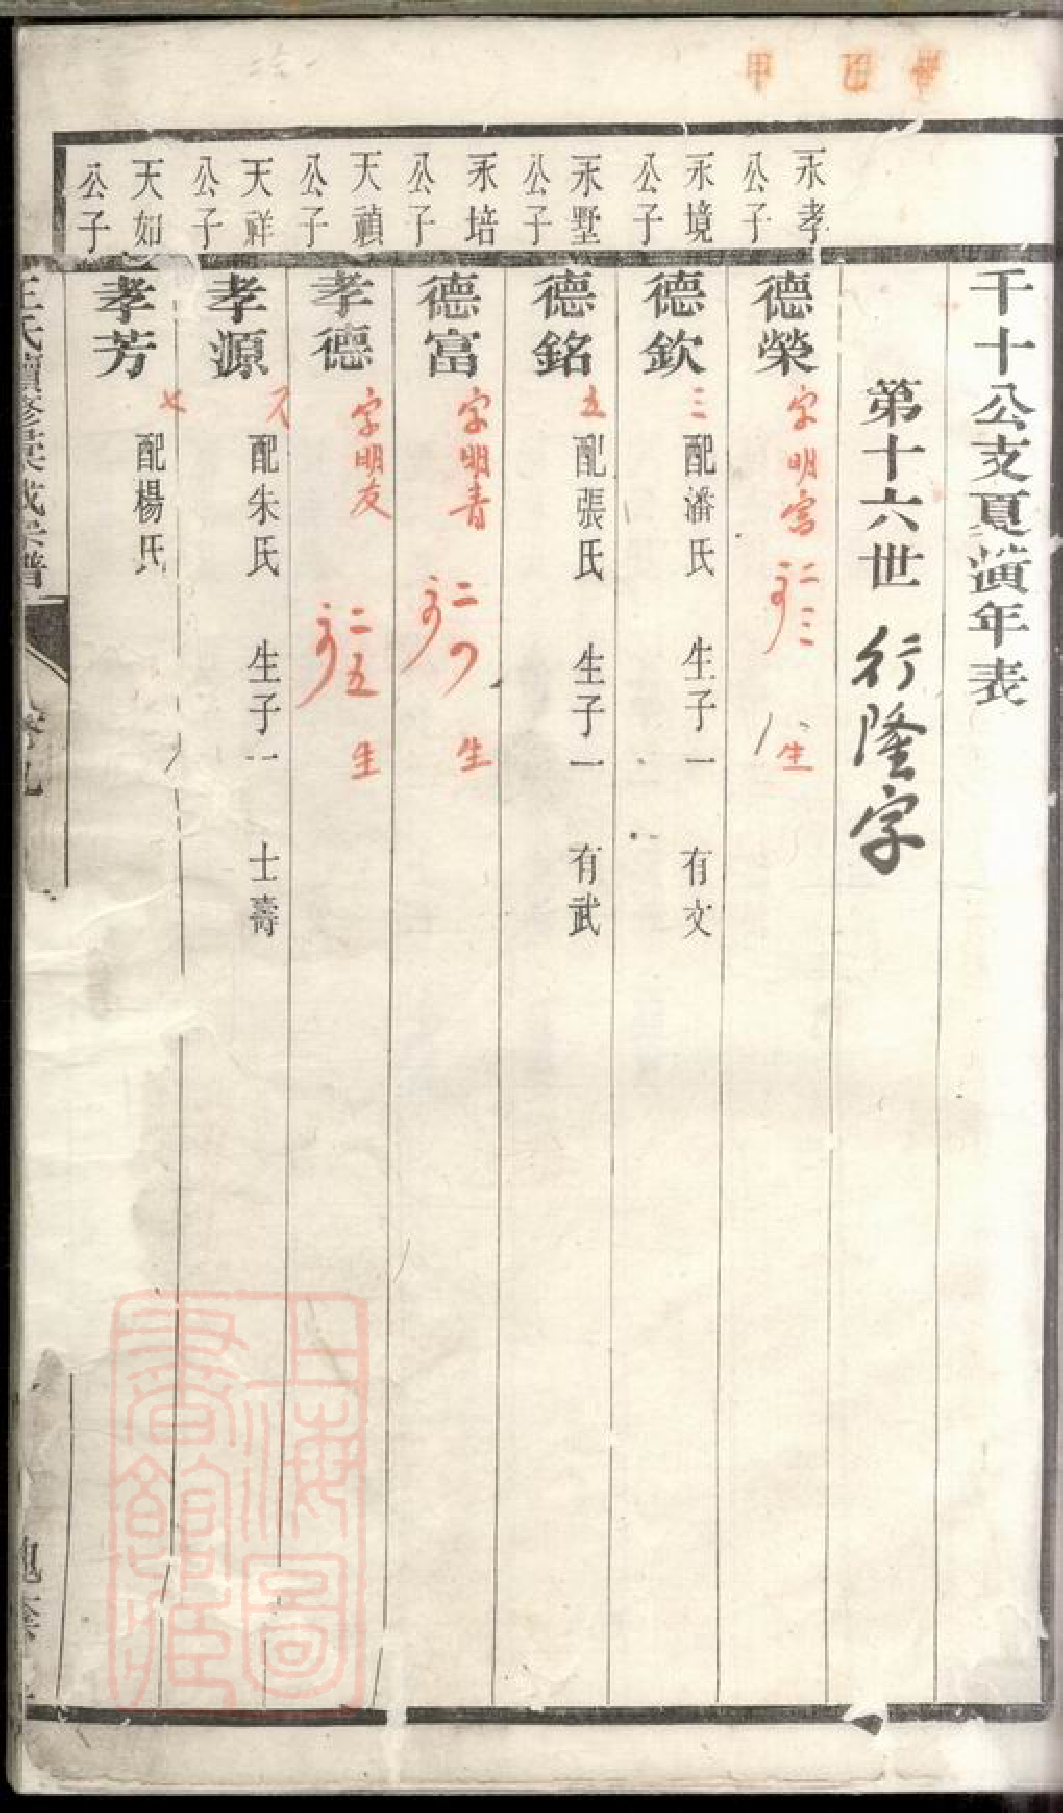 千十公支夏演年表
第十六世 行隆字
永孝公子
德榮 字明宮 二三 生
永境公子
德欽 三 配潘氏 生子一 有文
永墅公子
德銘 五 配張氏 生子一 有武
永培公子
德富 字明青 二 生
天禎公子
孝德 字明友 二五 生
天祥公子
孝源 配朱氏 生子一 士壽
天如公子
孝芳 七 配楊氏
王氏續修 宗譜
上海圖書館藏